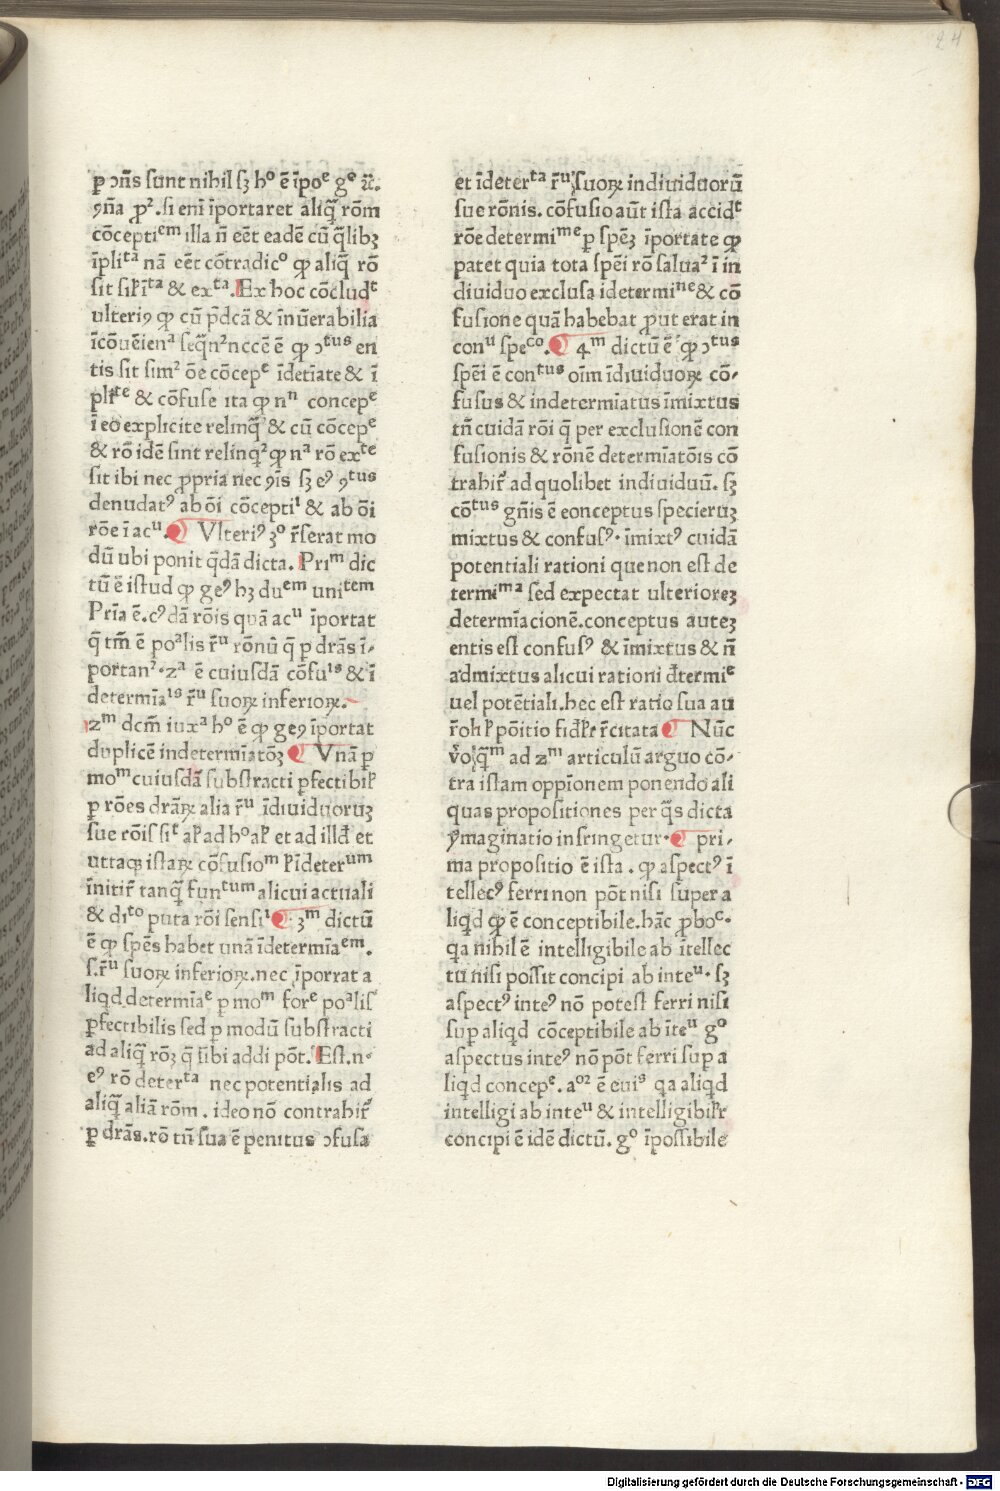 24
ꝑ ↄñs sunt nihil sꝫ hᵒ ē īpoᵉ gᵉ
ꝯña ꝓ². si eni īportaret aliq̄ rōm
cōceptiᵉᵐ illa ñ eēt eadē cū q̄libꝫ
īpliᵗᵃ nā eēt cōtradicᵒ ꝙ aliq̄ rō
& exᵗᵃ. Ex hoc cōcludᵗ
ulteriꝯ ꝙ cū p̄dcā & īnūerabilia
ꝙ ↄᵗᵘˢ en
tis sit sim² ōe cōcepᵉ īdetīate & ī
& cōfuse ita ꝙ nⁿ concepᵉ
ī eo explicite relinq̄ & cū cōcepᵉ
& rō idē sint relinq² ꝙ nᵃ rō exᵗᵉ
sit ibi nec ꝓpria nec ꝯīs sꝫ eꝰ ꝯᵗᵘˢ
denudatꝰ ab ōi cōceptiⁱ & ab ōi
rōe ī acᵘ. Vlteriꝰ ꝫᵒ r̄serat mo
dū ubi ponit q̄dā dicta. Priᵐ dic
tū ē istud ꝙ geꝰ hꝫ duᵉᵐ uniᵗᵉᵐ
Prīa ē. cꝰdā rōis quā acᵘ īportat
q̄ tm̄ ē poᵃlis r̄ᵘ rōnū q̄ ꝑ drās ī-
portan². 2ᵃ ē cuiusdā cōfuⁱˢ & ī
determīaⁱˢ r̄ᵘ suoꝝ inferioꝝ.
2ᵐ dcm̄ iuxᵃ hᵒ ē ꝙ geꝯ īportat
duplicē indetermīatōꝫ Vnā ꝑ
moᵐ cuiusdā substracti ꝑfectibil
ꝑ rōes drāꝝ alia r̄ᵘ īdiuiduoruꝫ
sue rōis siᵗ ad hᵒ et ad illd̄ et
uttaqꝫ istaꝝ cōfusioᵐ īdeterᵘᵐ
īnitir̄ tanq̄ funᵗᵘᵐ alicui actuali
& diᵗᵒ puta rōi sensiⁱ. 3ᵐ dictū
ē ꝙ spēs habet unā īdetermīaᵉᵐ.
s. r̄ᵘ suoꝝ inferioꝝ. nec īporrat a
liqd determīaᵉ ꝑ moᵐ forᵉ poᵃlis
ꝑfectibilis sed ꝑ modū substracti
ad aliq̄ rōꝫ q̄ sibi addi pōt. Est. n.
eꝰ rō deterᵗᵃ nec potentialis ad
aliq̄ aliā rōm. ideo nō contrabir̄
ꝑ drās. rō tn̄ sua ē penitus ↄfusa
et īdeterᵗᵃ r̄ᵘ suoꝝ indiuiduorū
sue rōnis. cōfusio aūt ista accidᵗ
rōe determiᵐᵉ ꝑ spēꝫ īportate ꝙ
patet quia tota spēi rō salua² ī in
diuiduo exclusa idetermiⁿᵉ & cō
fusione quā habebat ꝓut erat in
conᵘ speᶜᵒ. 4ᵐ dictū ē ꝙ ↄᵗᵘˢ
spēi ē conᵗᵘˢ oīm īdiuiduoꝝ cō-
fusus & indetermīatus īmixtus
tn̄ cuidā rōi q̄ per exclusionē con
fusionis & rōnē determīatōis cō
trahir̄ ad quolibet indiuiduū. sꝫ
cōᵗᵘˢ gn̄is ē eonceptus specieruꝫ
mixtus & confusꝰ. īmixtꝰ cuidā
potentiali rationi que non est de
termiᵐᵃ sed expectat ulterioreꝫ
determīacionē. conceptus auteꝫ
entis est confusꝰ & īmixtus & ñ
admixtus alicui rationi d̄termiᵉ
uel potētiali. hec est ratio sua au
pōitio r̄citata Nūc
ad 2ᵐ articulū arguo cō-
tra istam oppīonem ponendo ali
quas propositiones per q̄s dicta
ymaginatio infringetur. pri-
ma propositio ē ista. ꝙ aspectꝰ ī
tellecꝰ ferri non pōt nisi super a
liqd ꝙ ē conceptibile. hāc ꝓboᶜ.
qa nihil ē intelligibile ab ītellec
tu nisi possit concipi ab inteᵘ. sꝫ
aspectꝰ inteꝰ nō potest ferri nisi
sup aliqd cōceptibile ab īteᵘ gᵒ
aspectus inteꝰ nō pōt ferri sup a
liqd concepᵉ. aᵒ² ē euiˢ qa aliqd
intelligi ab inteᵘ & intelligibilr̄
concipi ē idē dictū. gᵒ īpossibile
Digitalisierung gefördert durch die Deutsche Forschungsgemeinschaft - DFG